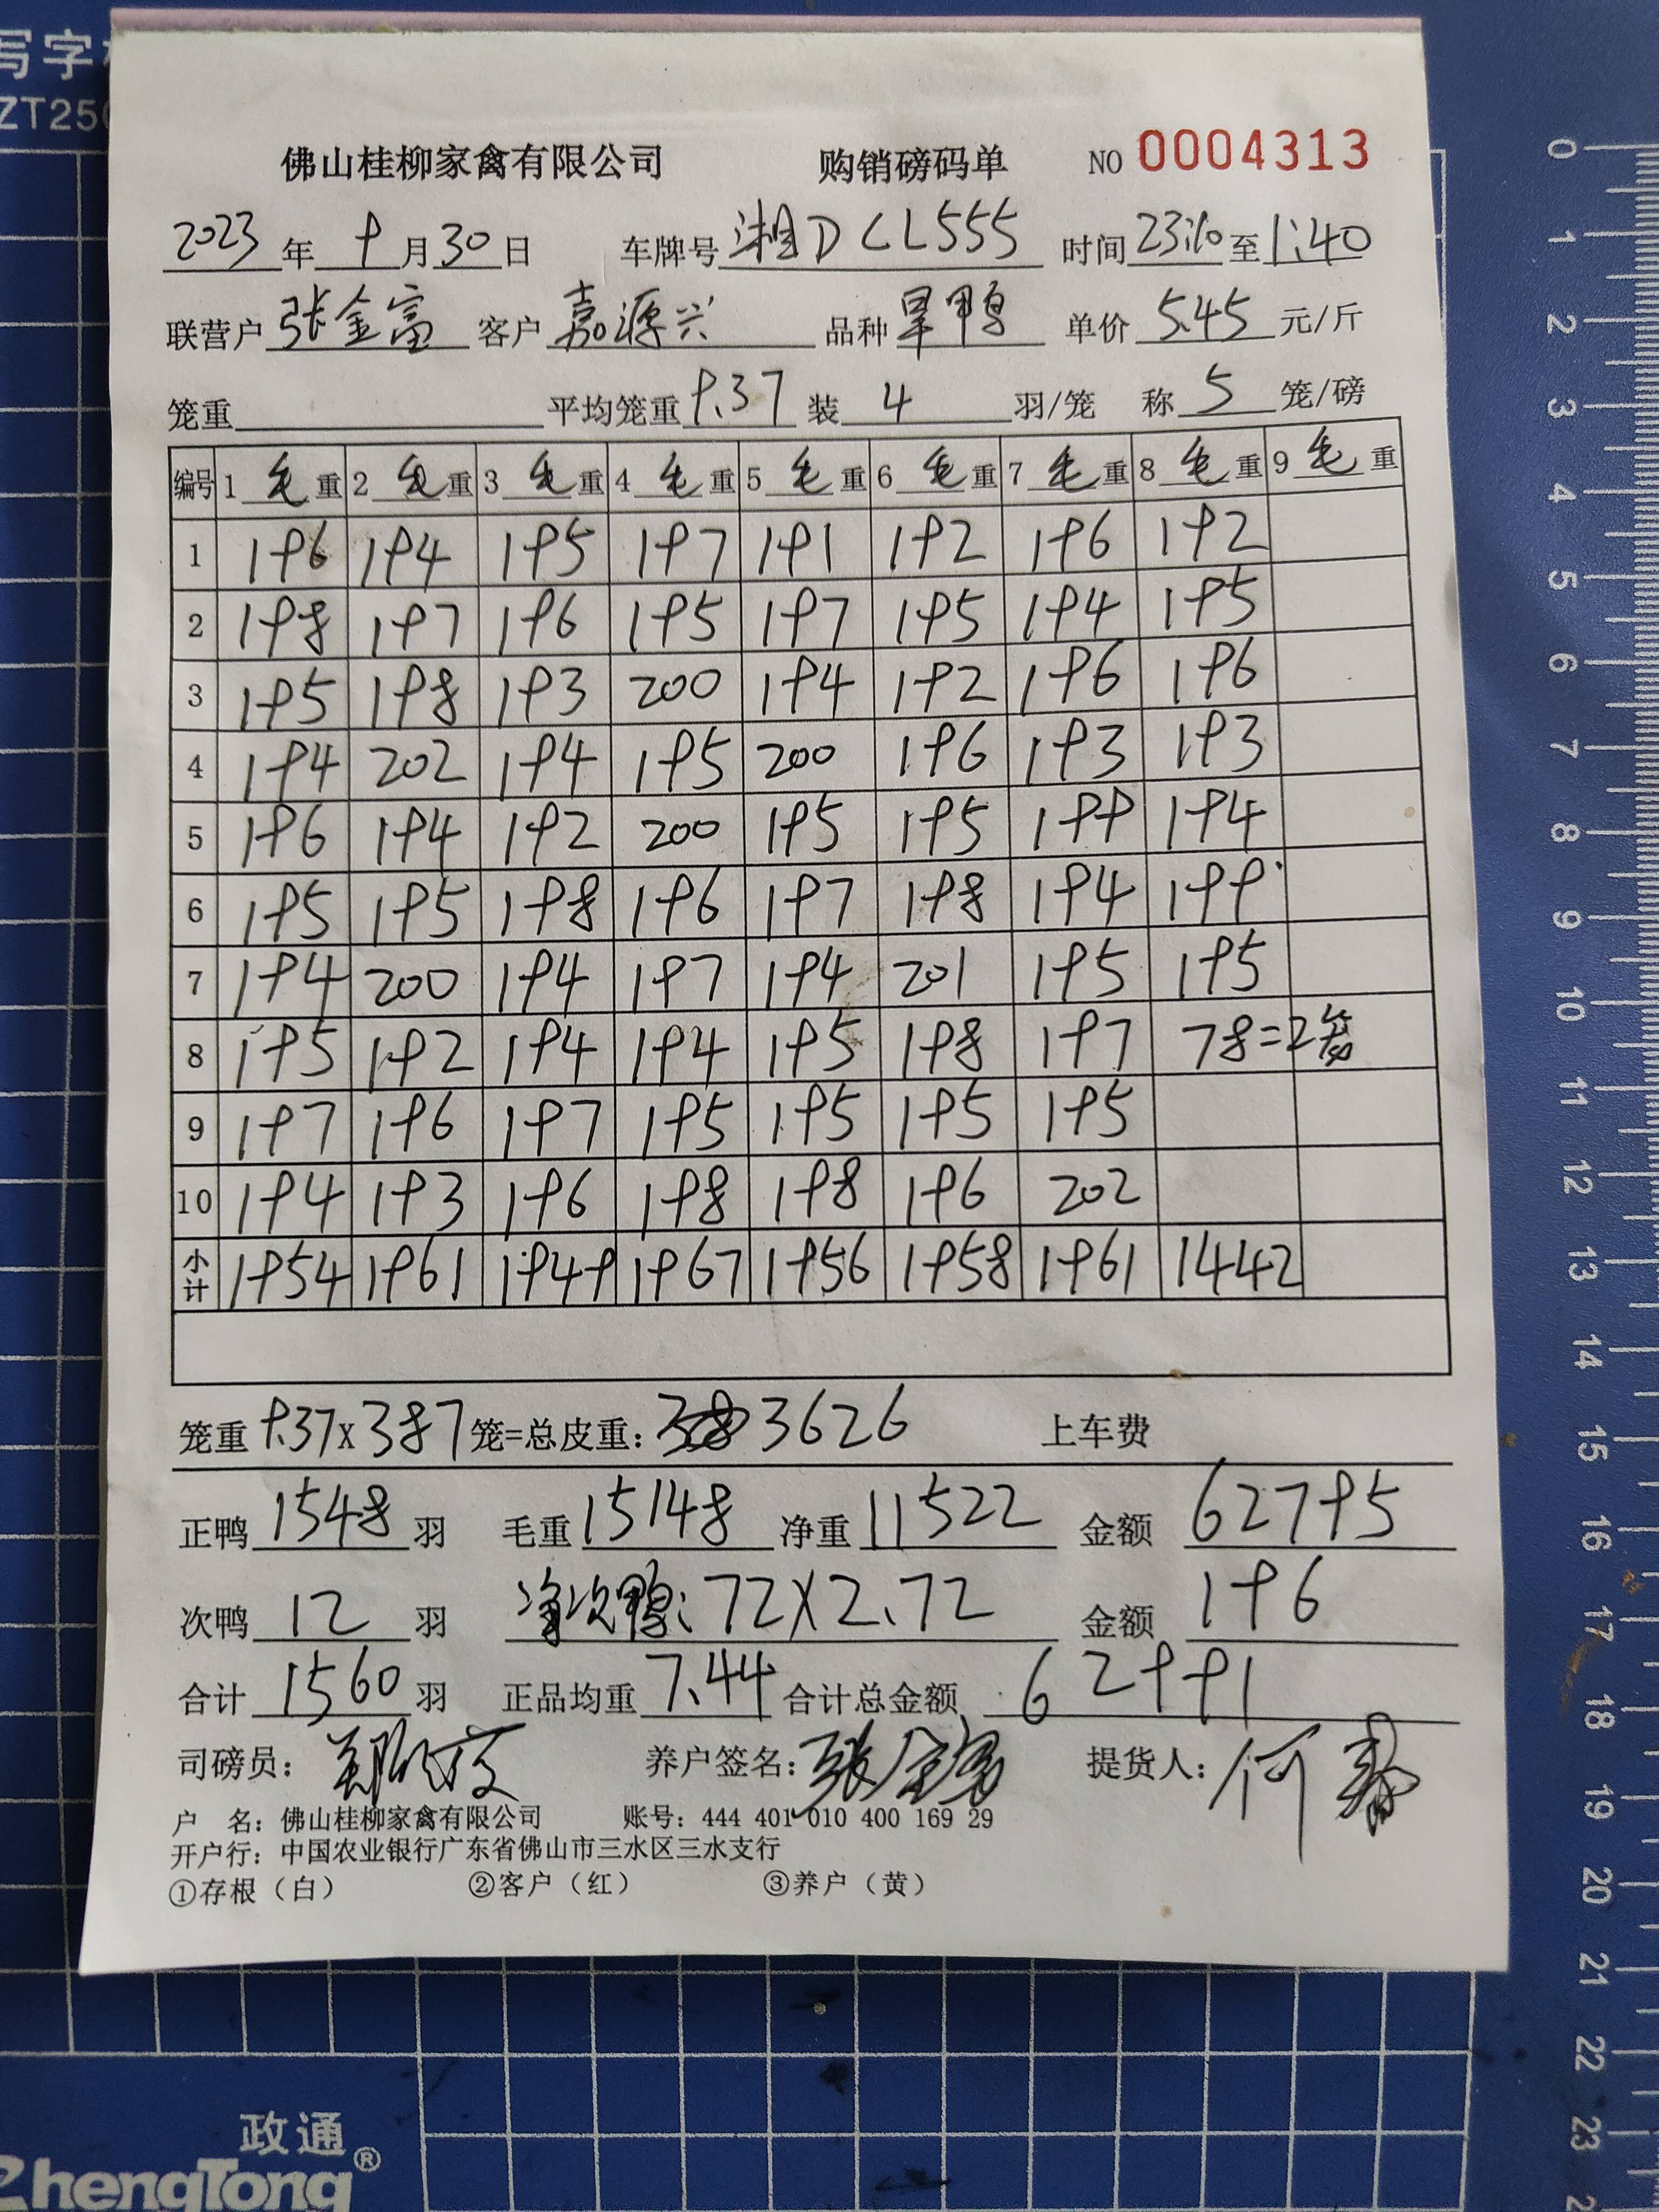 写字
ZT250
佛山桂柳家禽有限公司 购销磅码单 NO 0004313
2023年9月30日 车牌号 湘DCL555 时间 23:10 至 1:40
联营户 张金富 客户 嘉源兴 品种 旱鸭 单价 5.45 元/斤
笼重 平均笼重 9.37 装 4 羽/笼 称 5 笼/磅
编号 1 毛重 2 毛重 3 毛重 4 毛重 5 毛重 6 毛重 7 毛重 8 毛重 9 毛重
1 196 194 195 197 191 192 196 192
2 198 197 196 195 197 195 194 195
3 195 198 193 200 194 192 196 196
4 194 202 194 195 200 196 193 193
5 196 194 192 200 195 195 199 194
6 195 195 198 196 197 198 194 199
7 194 200 194 197 194 201 195 195
8 195 192 194 194 195 198 197 78=2笼
9 197 196 197 195 195 195 195
10 194 193 196 198 198 196 202
小计 1954 1961 1949 1967 1956 1958 1961 1442
笼重 9.37x387 笼=总皮重: 3626 上车费
正鸭 1548 羽 毛重 15148 净重 11522 金额 62795
次鸭 12 羽 次鸭: 72X2.72 金额 196
合计 1560 羽 正品均重 7.44 合计总金额 62991
司磅员: 养户签名: 张金富 提货人: 何春
户 名: 佛山桂柳家禽有限公司 账号: 444 401 010 400 169 29
开户行: 中国农业银行广东省佛山市三水区三水支行
①存根（白） ②客户（红） ③养户（黄）
0
1
2
3
4
5
6
7
8
9
10
11
12
13
14
15
16
17
18
19
20
21
22
23
政通®
ZhengTong